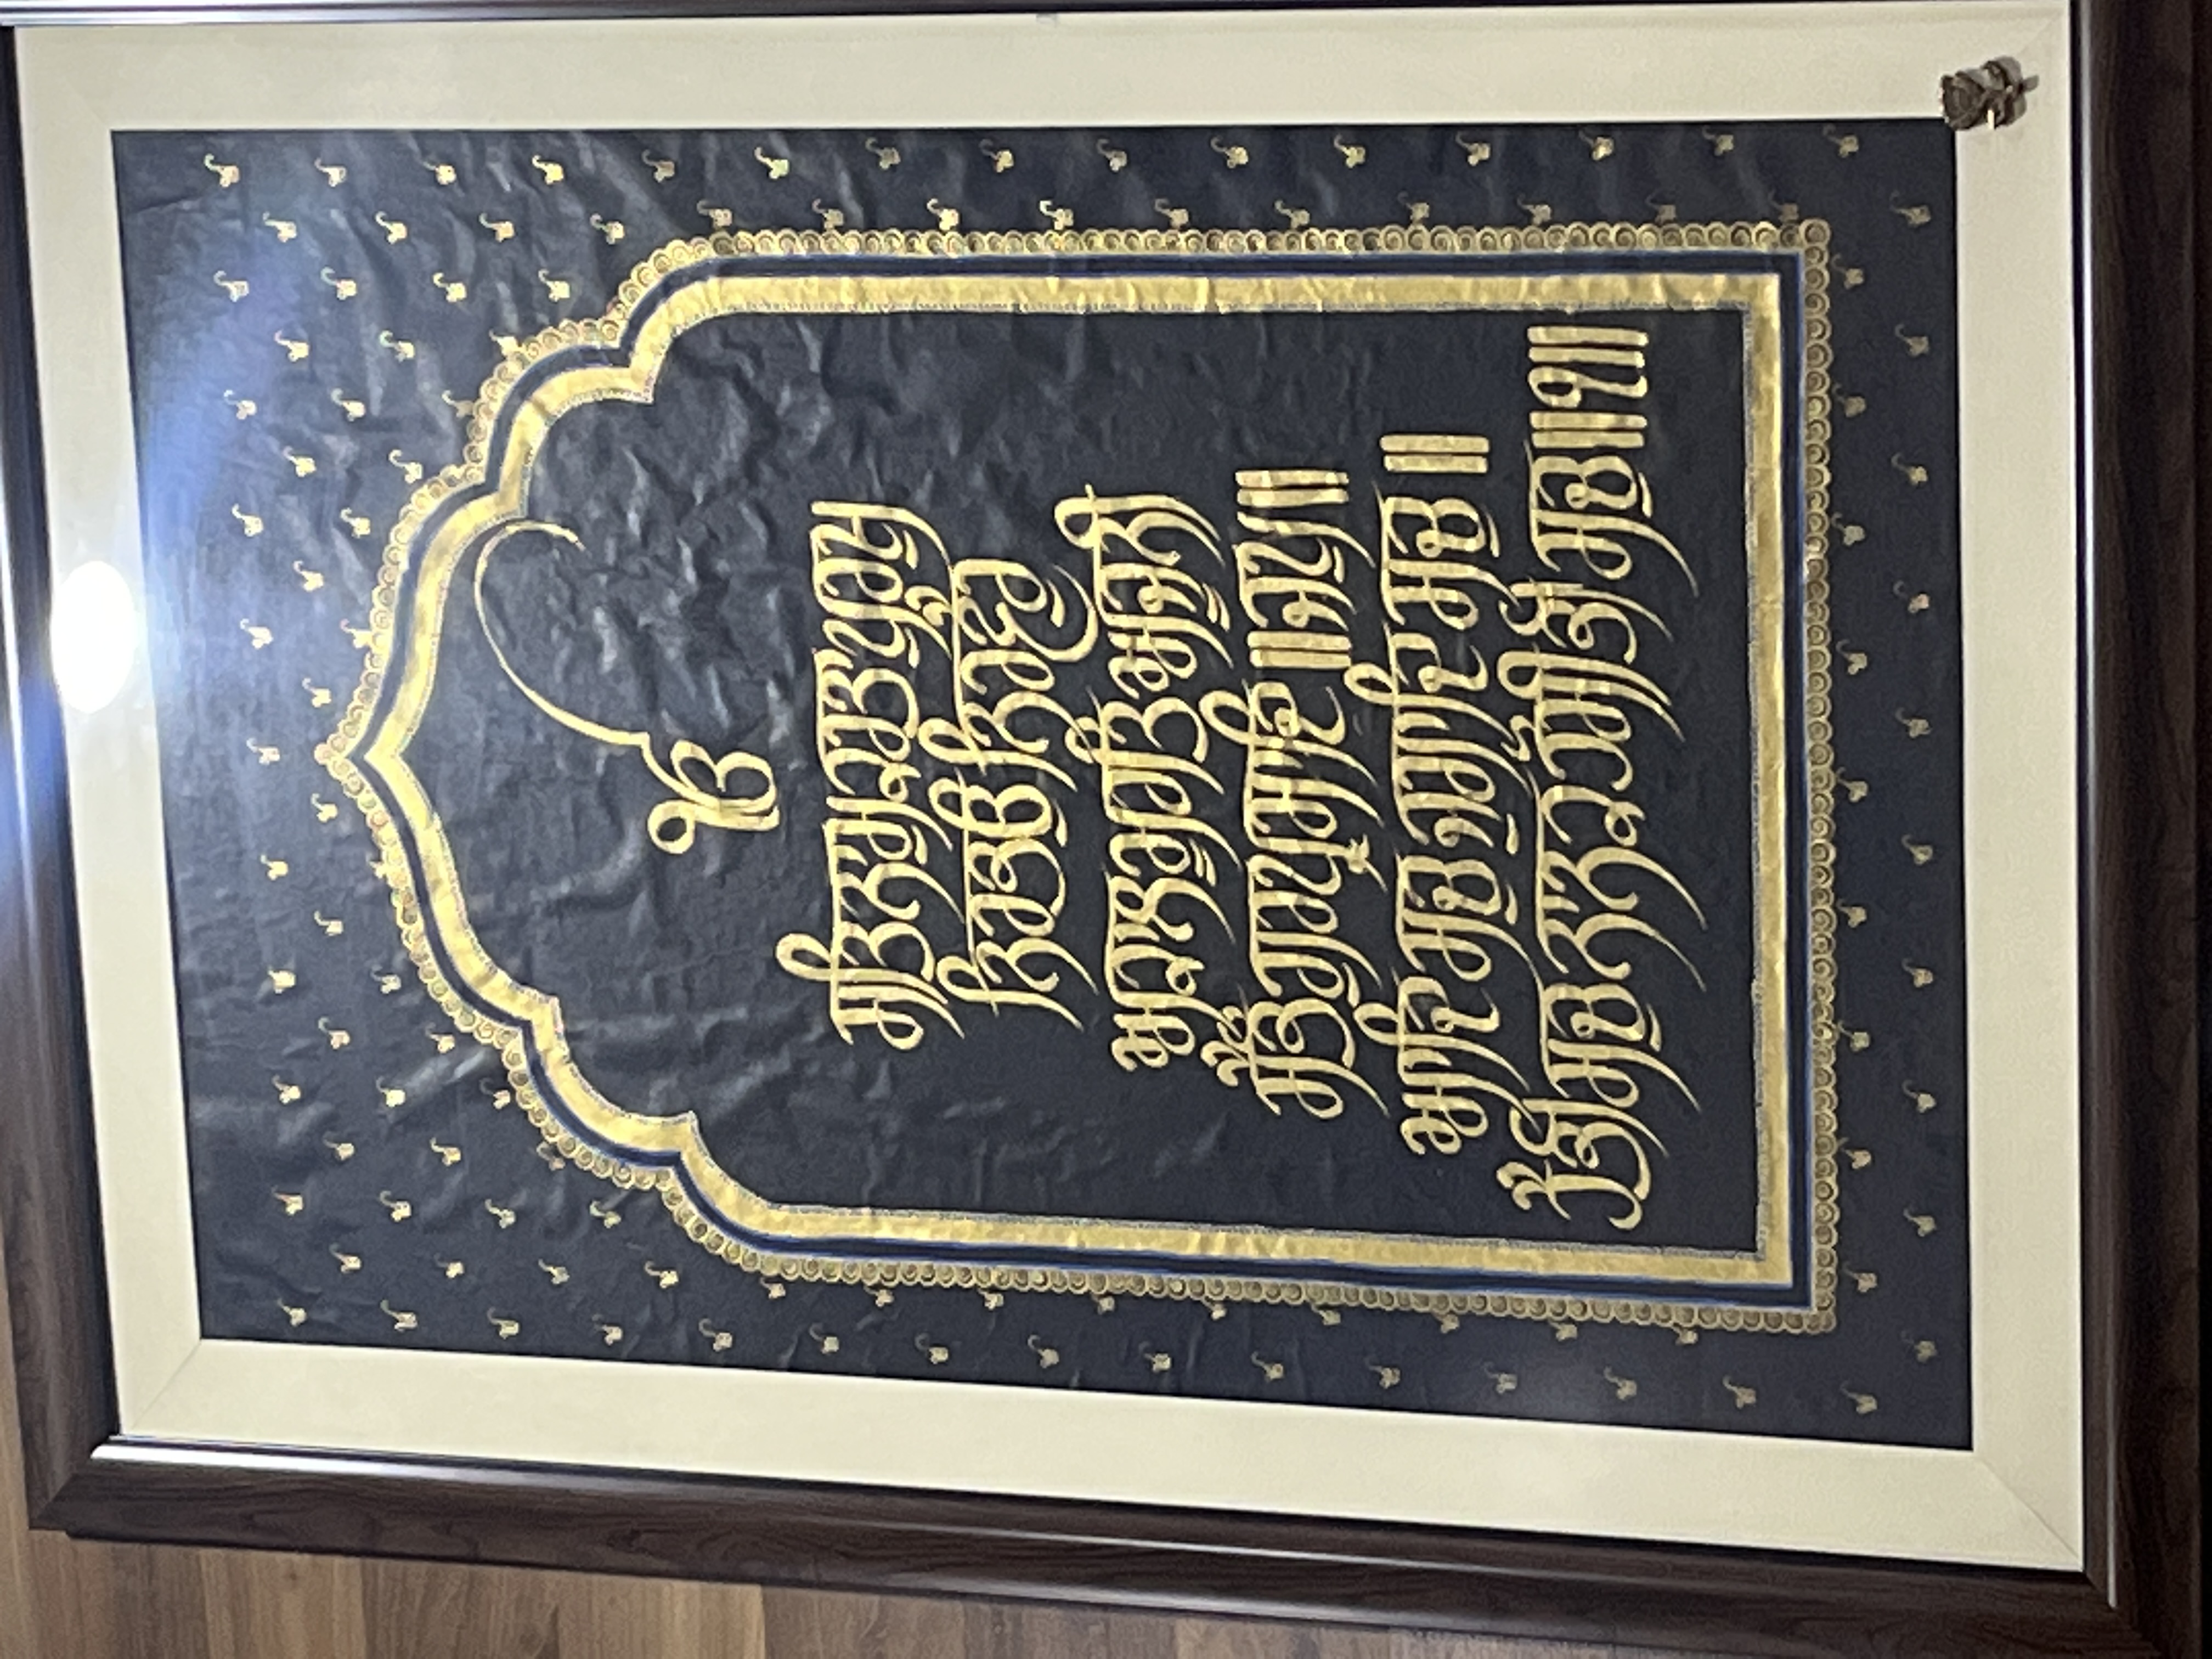 ੴ
ਸਤਿਨਾਮੁ ਕਰਤਾ ਪੁਰਖੁ
ਨਿਰਭਉ ਨਿਰਵੈਰੁ
ਅਕਾਲ ਮੂਰਤਿ ਅਜੂਨੀ
ਸੈਭੰ ਗੁਰਪ੍ਰਸਾਦਿ ॥ਜਪੁ॥
ਆਦਿ ਸਚੁ ਜੁਗਾਦਿ ਸਚੁ ॥
ਹੈ ਭੀ ਸਚੁ ਨਾਨਕ ਹੋਸੀ ਭੀ ਸਚੁ ॥੧॥